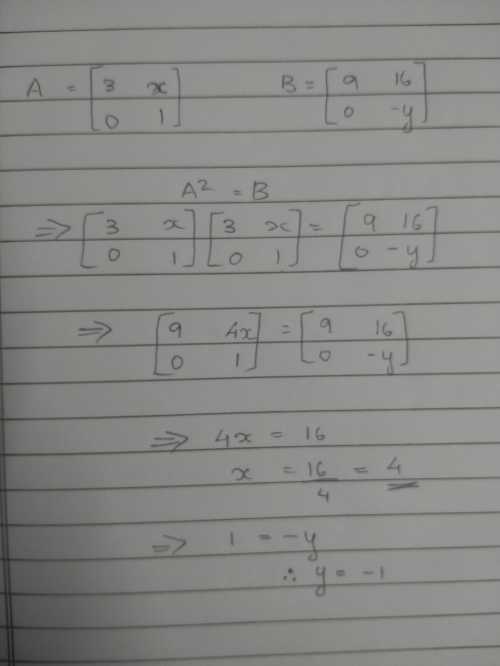 A = [3 x; 0 1] B = [9 16; 0 -y]
A² = B
⇒ [3 x; 0 1] [3 x; 0 1] = [9 16; 0 -y]
⇒ [9 4x; 0 1] = [9 16; 0 -y]
⇒ 4x = 16
x = 16/4 = 4
⇒ 1 = -y
∴ y = -1